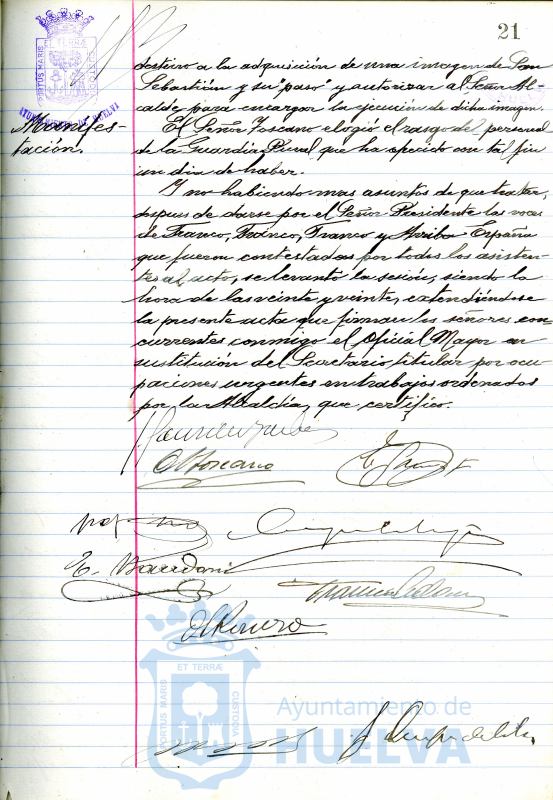 21
PORTUS MARIS ET TERRÆ CUSTODIA
AYUNTAMIENTO DE HUELVA
destino a la adquisición de una imagen de San
Sebastián y su "paso" y autorizar al Señor Al-
calde para encargar la ejecución de dicha imagen.
Manifes-
tación.
El Señor Toscano elogió el rasgo del personal
de la Guardia Rural que ha ofrecido con tal fin
un día de haber.
Y no habiendo mas asuntos de que tratar,
despues de darse por el Señor Presidente las voces
de Franco, Franco, Franco y Arriba España
que fueron contestadas por todos los asisten-
tes al acto, se levantó la sesión, siendo la
hora de las veinte y veinte, extendiéndose
la presente acta que firman los señores con
currentes conmigo el Oficial Mayor en
sustitución del Secretario titular por ocu-
paciones urgentes en trabajos ordenados
por la Alcaldía, que certifico.
Toscano
E.
Romero
ET TERRÆ
PORTUS MARIS
CUSTODIA
Ayuntamiento de
HUELVA